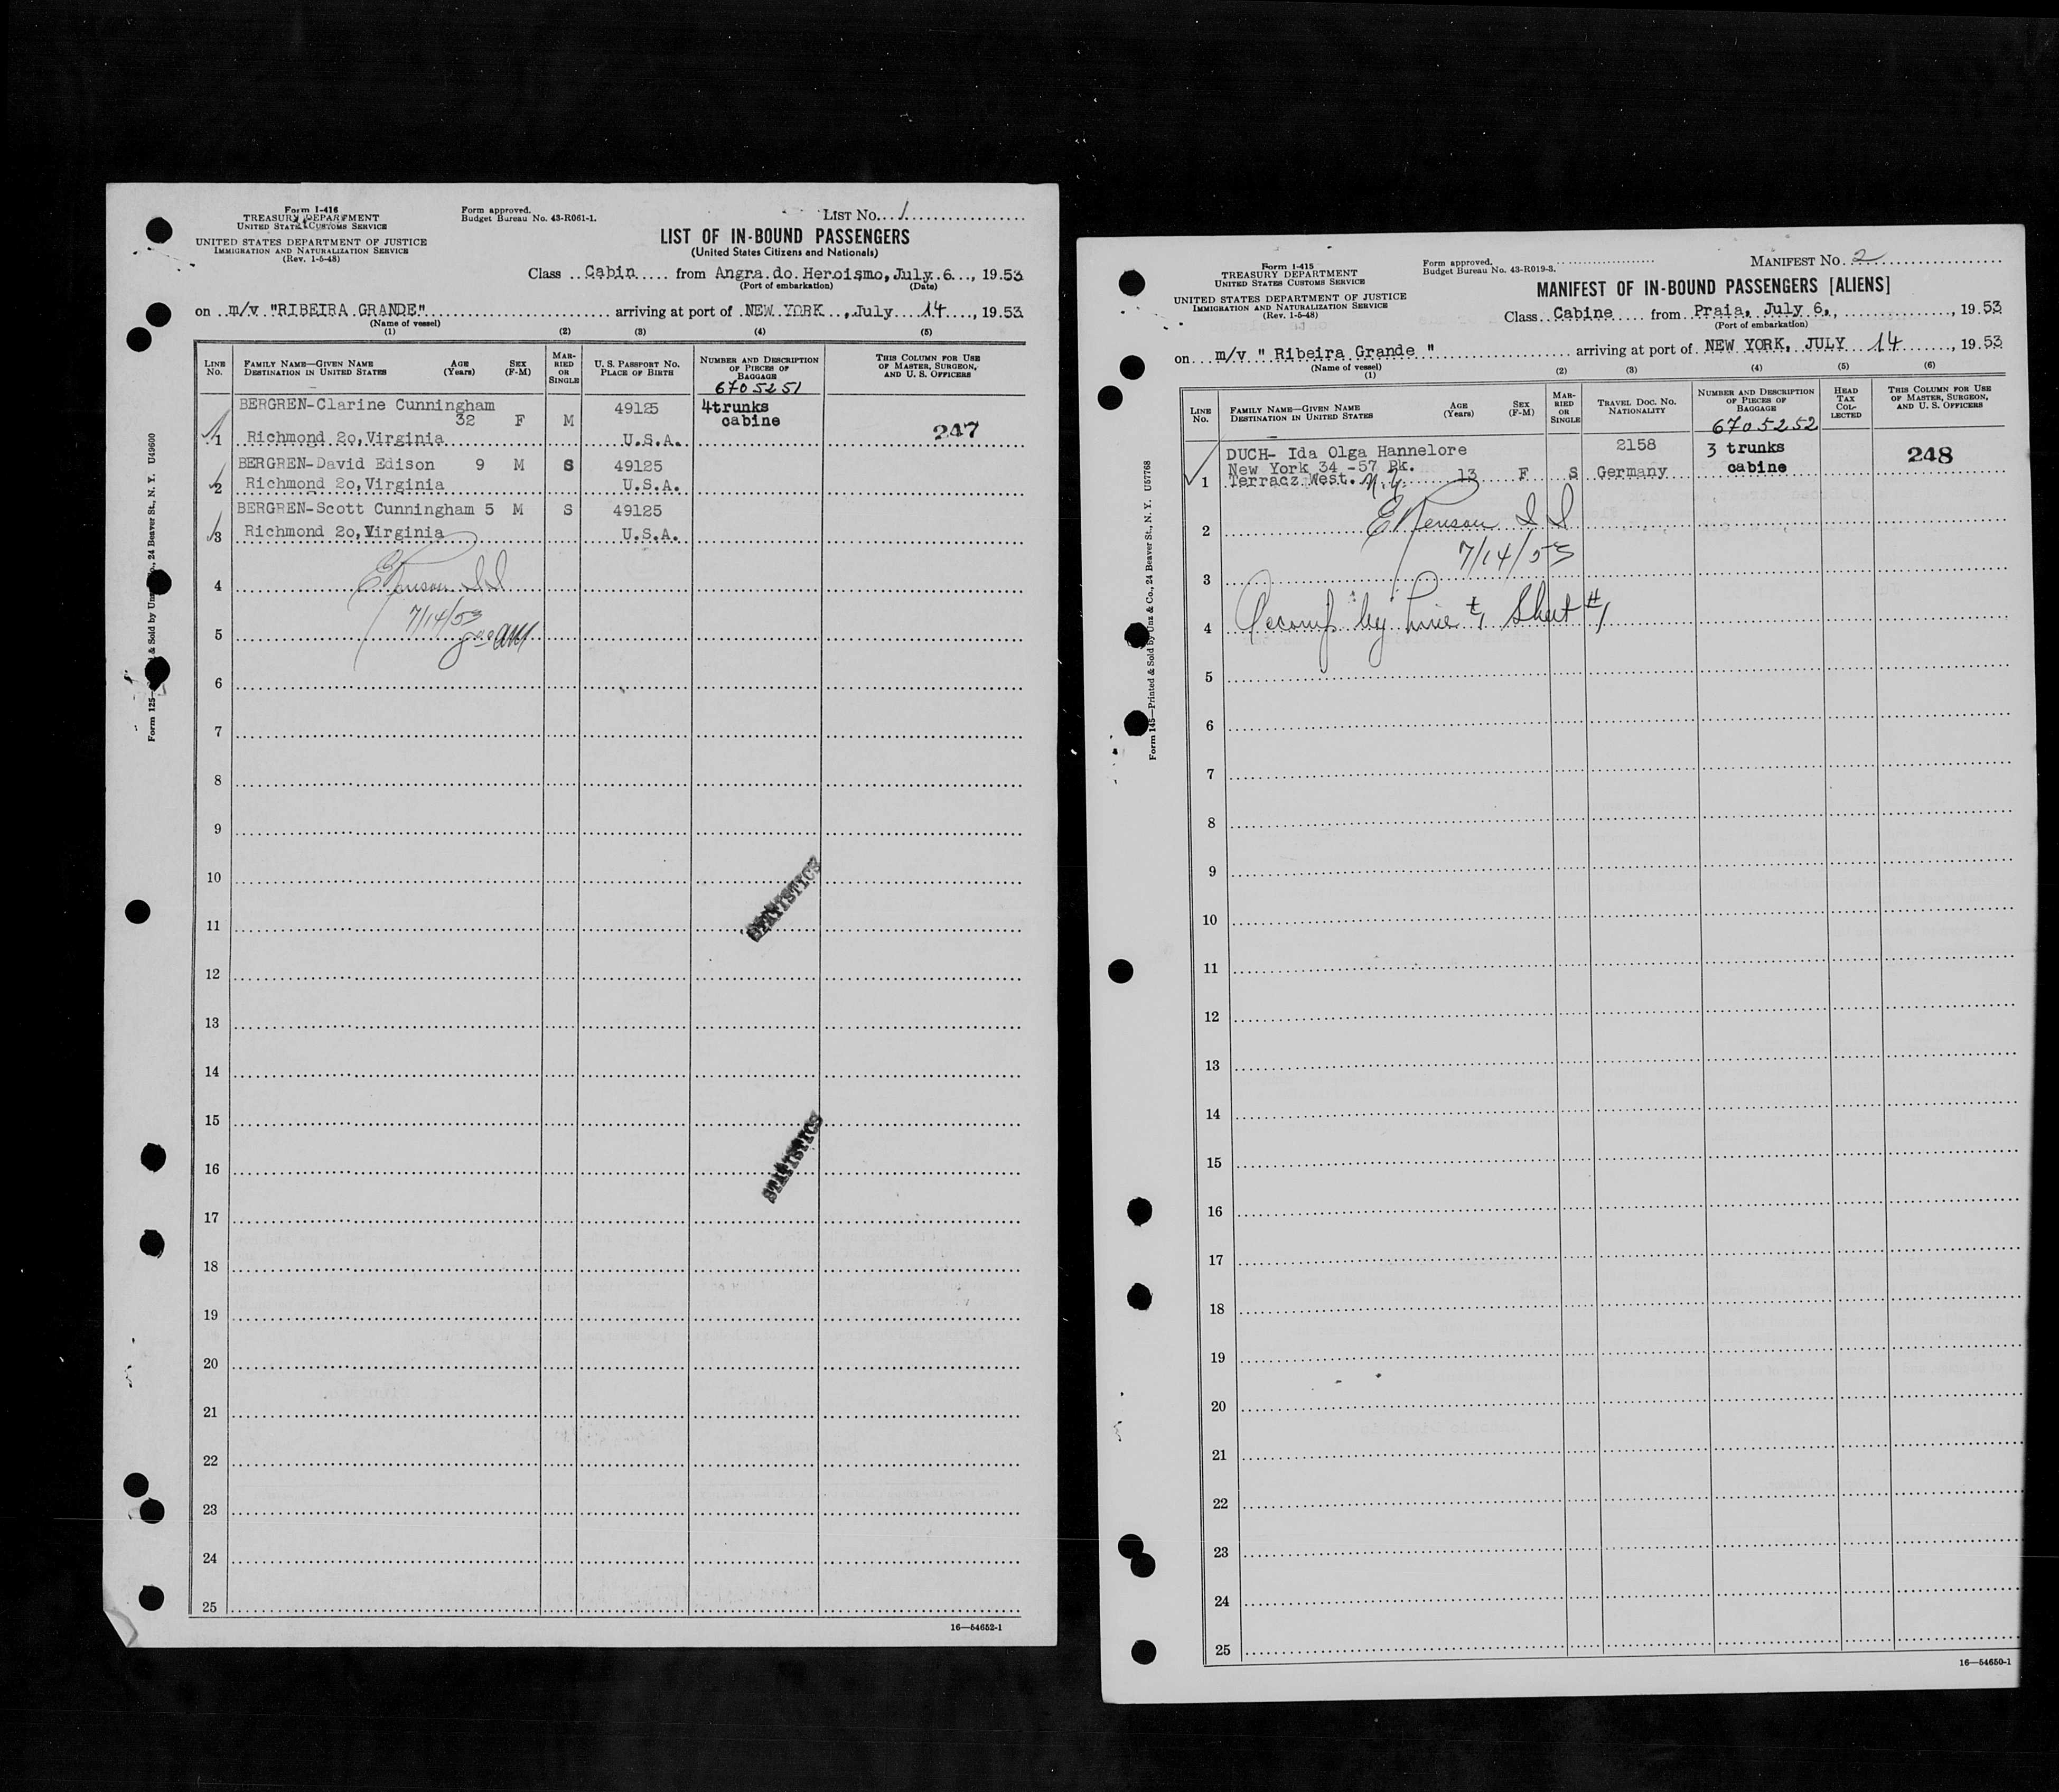 Form I-416
TREASURY DEPARTMENT
UNITED STATES CUSTOMS SERVICE
UNITED STATES DEPARTMENT OF JUSTICE
IMMIGRATION AND NATURALIZATION SERVICE
(Rev. 1-5-48)
Form approved.
Budget Bureau No. 43-R061-1.
LIST No. 1
LIST OF IN-BOUND PASSENGERS
(United States Citizens and Nationals)
Class Cabin from Angra do Heroismo, July 6, 1953
(Port of embarkation) (Date)
on m/v "RIBEIRA GRANDE" arriving at port of NEW YORK, July 14, 1953
(Name of vessel)
(1) (2) (3) (4) (5)
LINE No. FAMILY NAME—GIVEN NAME DESTINATION IN UNITED STATES AGE (Years) SEX (F-M) MARRIED OR SINGLE U. S. PASSPORT No. PLACE OF BIRTH NUMBER AND DESCRIPTION OF PIECES OF BAGGAGE THIS COLUMN FOR USE OF MASTER, SURGEON, AND U. S. OFFICERS
6705251
BERGREN-Clarine Cunningham 49125 4trunks
32 F M cabine
1 Richmond 20,Virginia U.S.A. 247
BERGREN-David Edison 9 M S 49125
2 Richmond 20,Virginia U.S.A.
BERGREN-Scott Cunningham 5 M S 49125
3 Richmond 20,Virginia U.S.A.
4
7/14/53
5
6
7
8
9
10
STATISTICS
11
12
13
14
15
STATISTICS
16
17
18
19
20
21
22
23
24
25
16—54652-1
Form 125— & Sold by Unz & Co., 24 Beaver St., N. Y. U49600
Form I-415
TREASURY DEPARTMENT
UNITED STATES CUSTOMS SERVICE
UNITED STATES DEPARTMENT OF JUSTICE
IMMIGRATION AND NATURALIZATION SERVICE
(Rev. 1-5-48)
Form approved.
Budget Bureau No. 43-R019-3.
MANIFEST No. 2
MANIFEST OF IN-BOUND PASSENGERS [ALIENS]
Class Cabine from Praia, July 6, , 1953
(Port of embarkation)
on m/v " Ribeira Grande " arriving at port of NEW YORK, JULY 14, 1953
(Name of vessel)
(1) (2) (3) (4) (5) (6)
LINE No. FAMILY NAME—GIVEN NAME DESTINATION IN UNITED STATES AGE (Years) SEX (F-M) MARRIED OR SINGLE TRAVEL DOC. No. NATIONALITY NUMBER AND DESCRIPTION OF PIECES OF BAGGAGE HEAD TAX COLLECTED THIS COLUMN FOR USE OF MASTER, SURGEON, AND U. S. OFFICERS
6705252
DUCH- Ida Olga Hannelore 2158 3 trunks 248
New York 34 -57 Pk. cabine
1 Terracz West. N.Y. 13 F S Germany
2
7/14/53
3
4 Accomp by Line #1 Sheet #1
5
6
7
8
9
10
11
12
13
14
15
16
17
18
19
20
21
22
23
24
25
16—54650-1
Form 145—Printed & Sold by Unz & Co., 24 Beaver St., N. Y. U57768